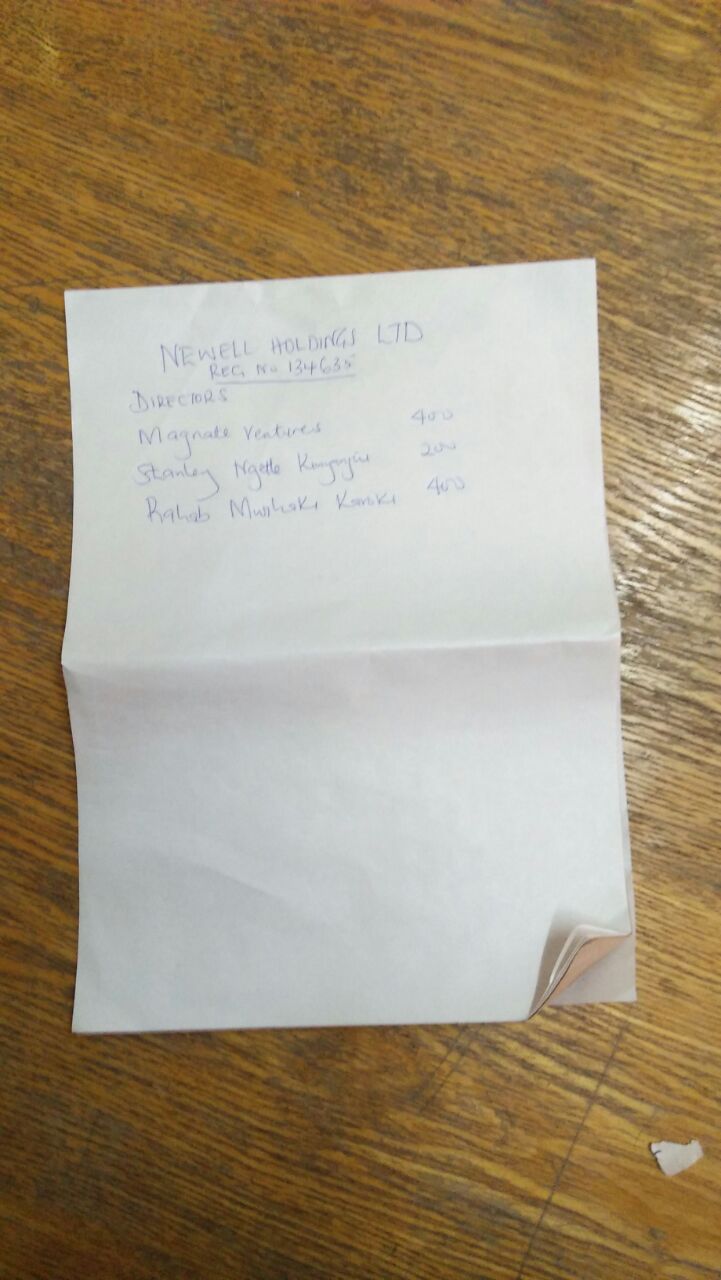 NEWELL HOLDINGS LTD
REG No 134635
DIRECTORS
Magnate Ventures 400
Stanley Ngethe Kinyanjui 200
Rahab Mwihaki Karoki 400